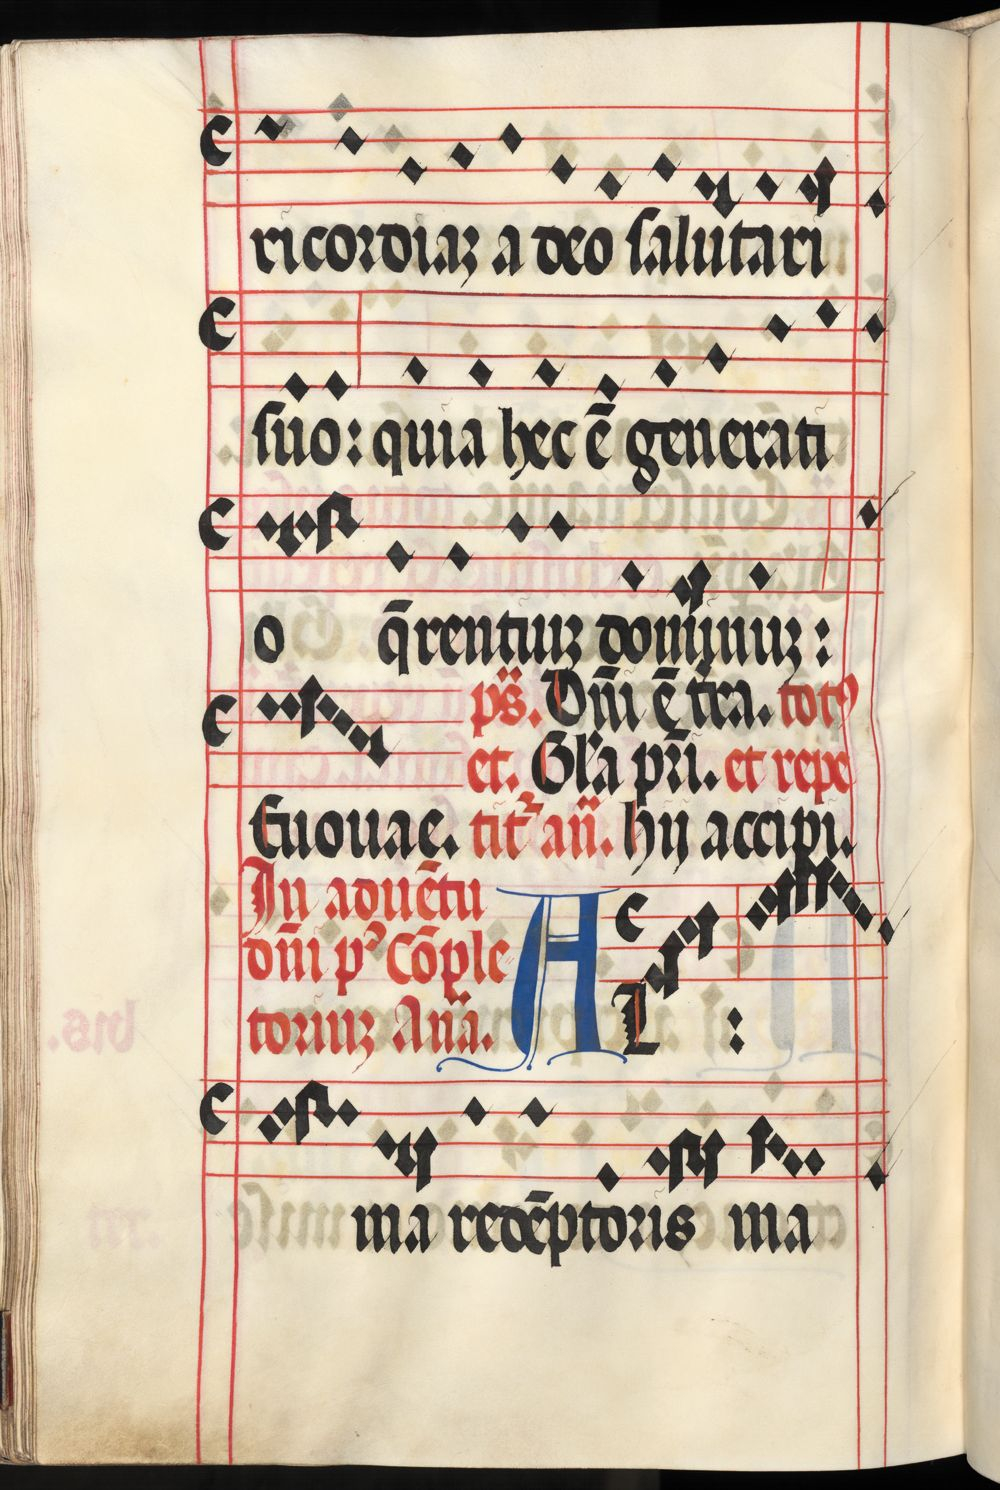 ricordiaꝫ a deo salutari
suo: quia hec ē generati
o q̄rentiuꝫ dominuꝫ:
ps. Dñi ē tr̄a. totꝰ
et. Gl'a pr̄i. et repe
Euouae. titᷣ añ. hij accipi.
In aduētu
dñi pꝰ Cōple
toriuꝫ Anã. AL :
ma redēptoris ma